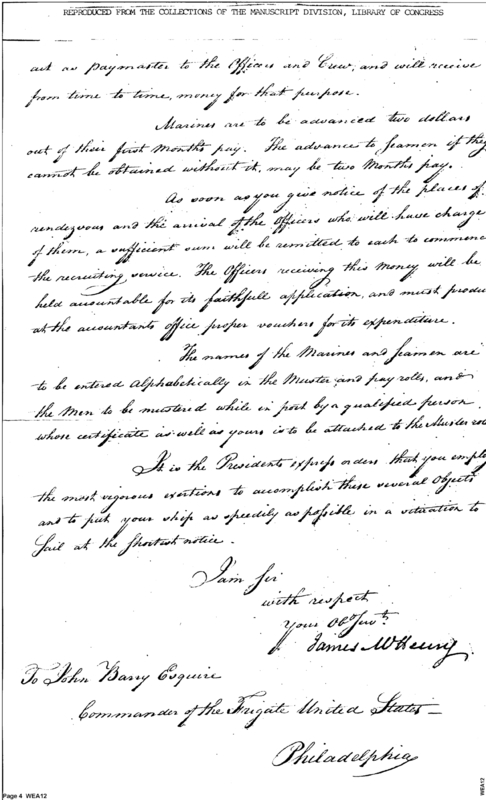 REPRODUCED FROM THE COLLECTIONS OF THE MANUSCRIPT DIVISION, LIBRARY OF CONGRESS
act as paymaster to the Officers and Crew, and will receive
from time to time, money for that purpose.
Marines are to be advanced two dollars
out of their first Months pay. The advance to Seamen if they
cannot be obtained without it, may be two Months pay.
As soon as you give notice of the places of
rendezvous and the arrival of the Officers who will have charge
of them, a sufficient sum will be remitted to each to commence
the recruiting service. The Officers receiving this Money will be
held accountable for its faithfull application, and must produ
at the accountants office proper vouchers for its expenditure.
The names of the Marines and Seamen are
to be entered Alphabetically in the Muster and pay roles, and
the Men to be mustered while in port by a qualified person
whose certificate as well as yours is to be attached to the Muster rol
It is the Presidents express orders that you employ
the most vigorous exertions to accomplish these several Objects
and to put your ship as speedily as possible in a situation to
Sail at the shortest notice.
I am Sir
with respect
Your Obd Servt
James McHenry
To John Barry Esquire
Commander of the Frigate United States
Philadelphia
Page 4 WEA12
WEA12